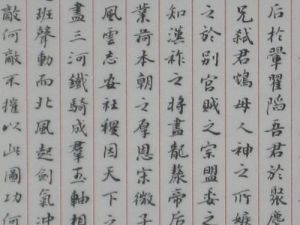 后於翬翟陷吾君於聚麀
兄弑君鴆母人神之所嫉
之於别宫賊之宗盟委之
知漢祚之將盡龍漦帝后
業荷本朝之厚恩宋微子
風雲志安社稷因天下之
盡三河鐵騎成羣玉軸相
班聲動而北風起劍氣沖
敵何敵不摧以此圖功何